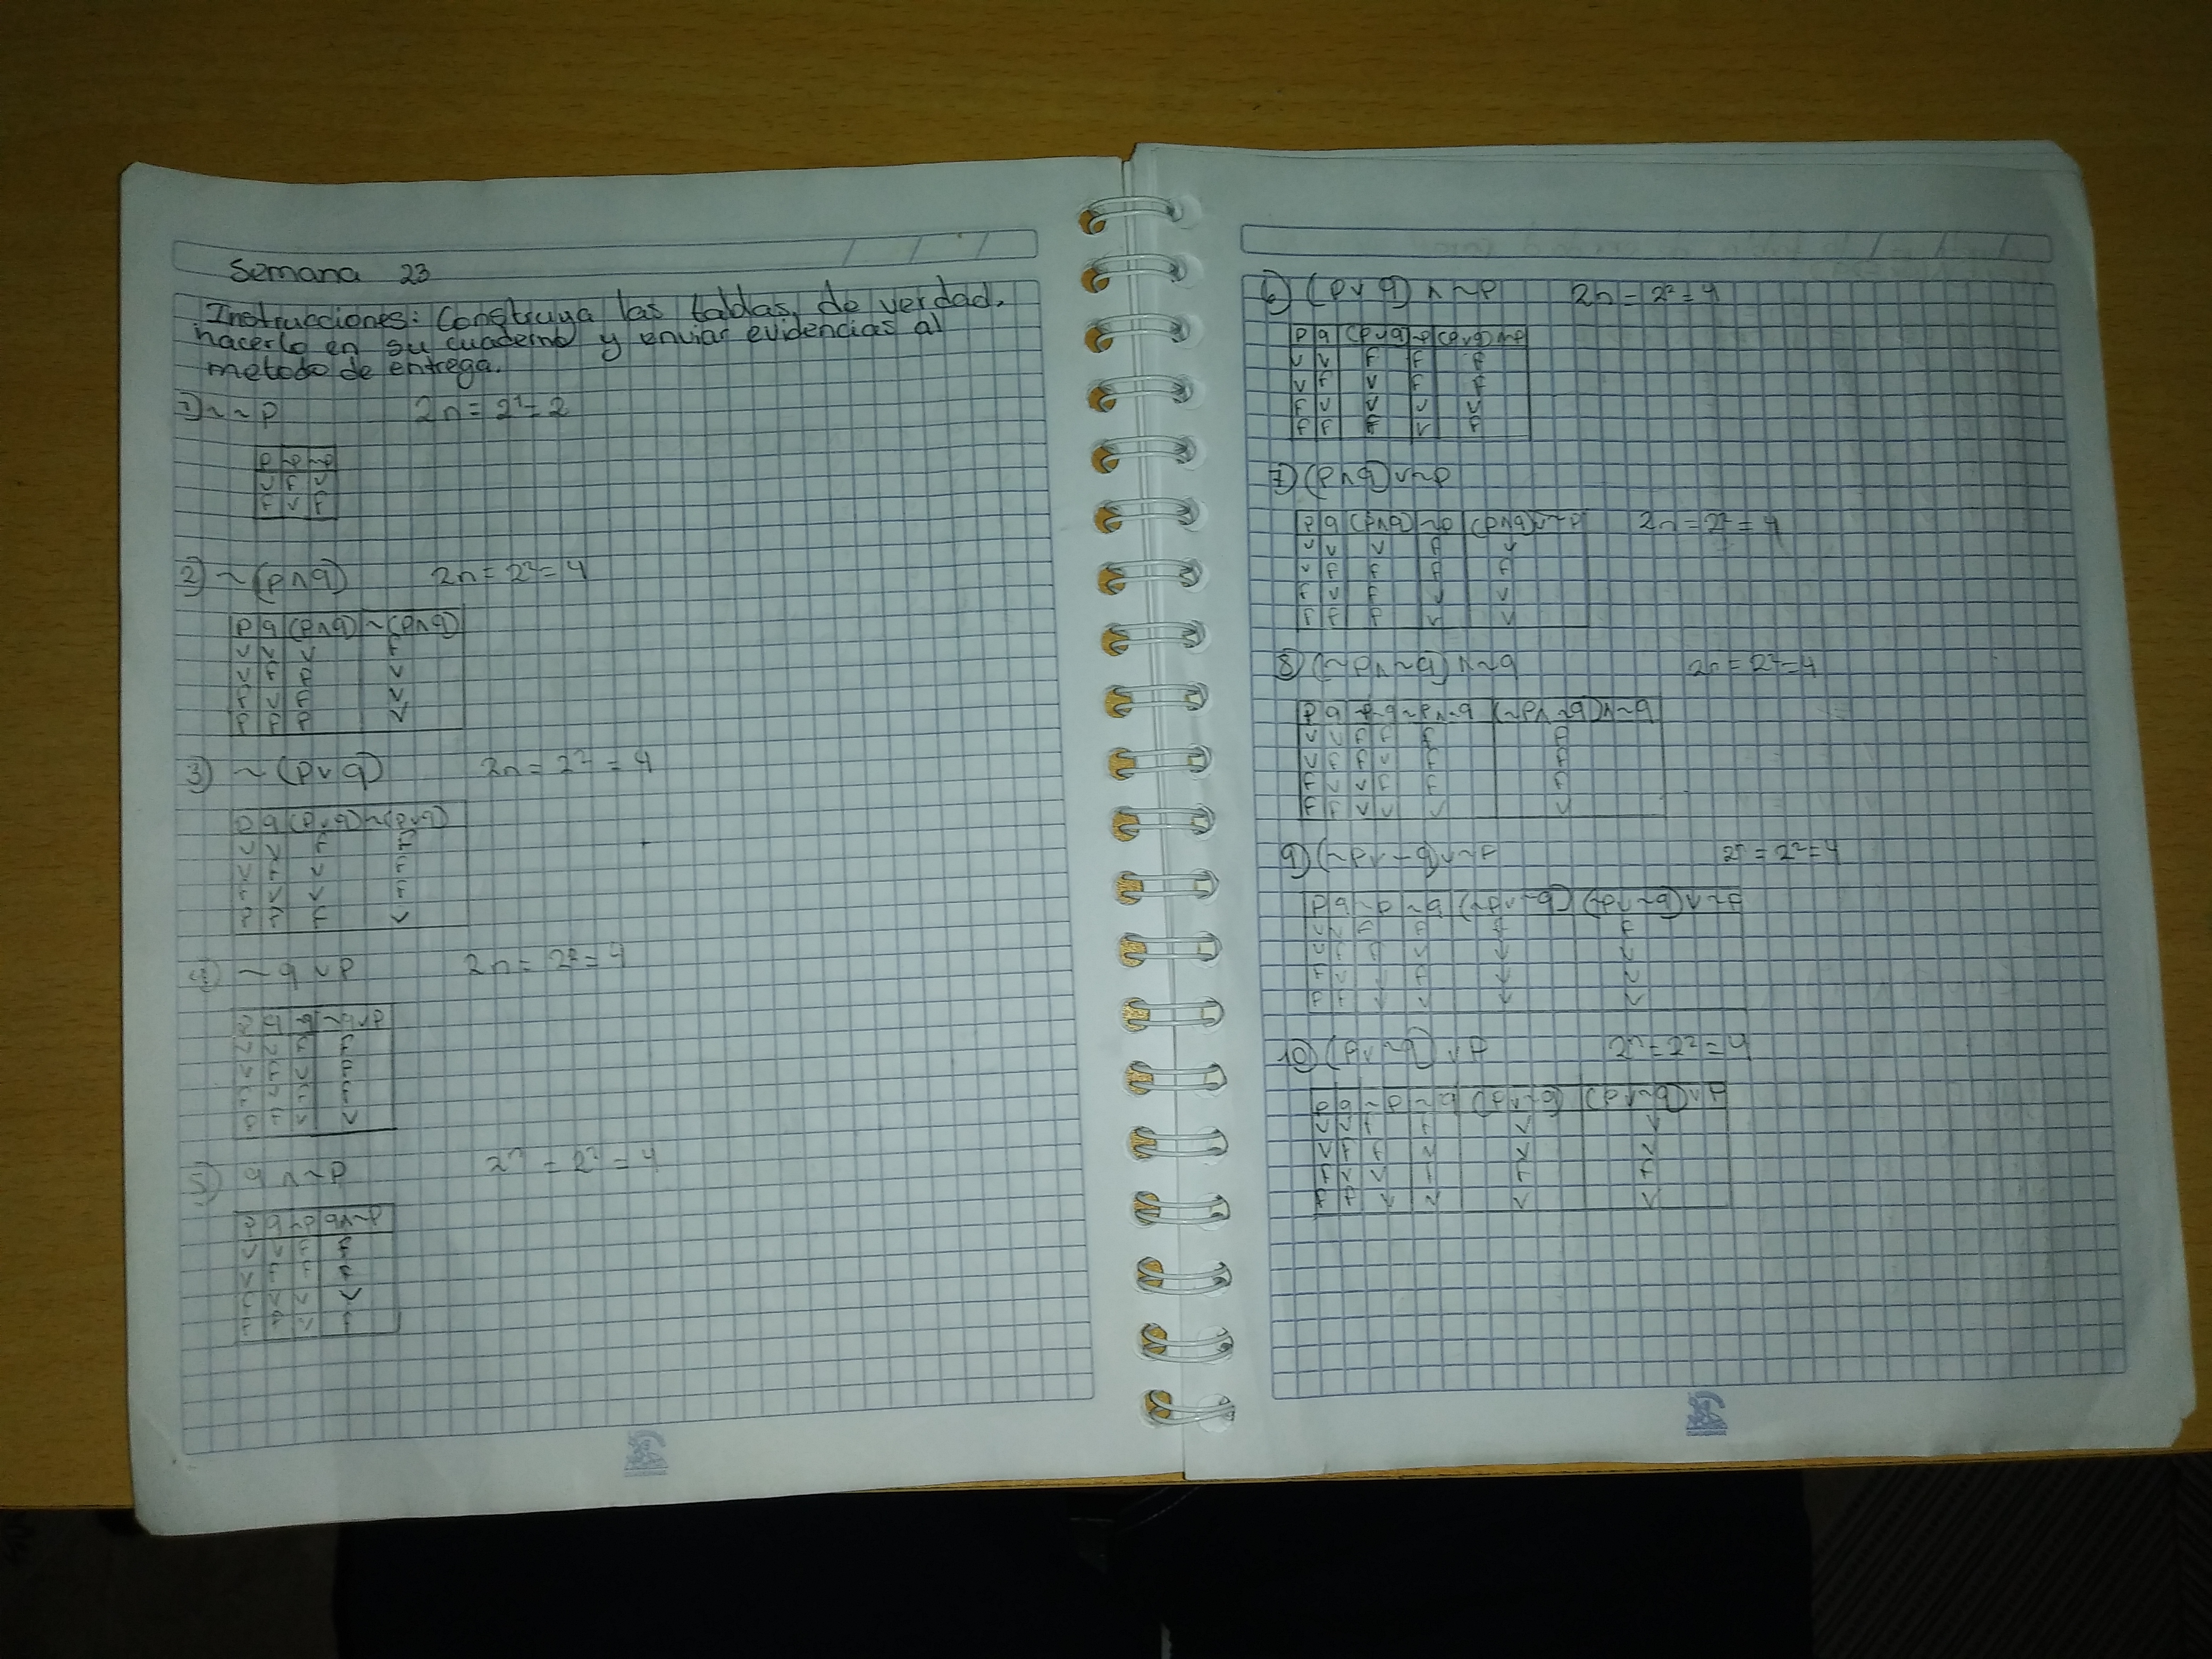 Semana 23
Instrucciones: Construya las tablas de verdad,
hacerlo en su cuaderno y enviar evidencias al
metodo de entrega.
1) ~~p 2n = 2¹ = 2
p ~p ~~p
v F v
F v F
2) ~(p∧q) 2n = 2² = 4
p q (p∧q) ~(p∧q)
v v v F
v F F v
F v F v
F F F v
3) ~(p∨q) 2n = 2² = 4
p q (p∨q) ~(p∨q)
v v F F
v F v F
F v v F
F F F v
4) ~q ∨ p 2n = 2² = 4
p q ~q ~q∨p
v v F F
v F v F
F v F F
F F v v
5) q ∧ ~p 2ⁿ = 2² = 4
p q ~p q∧~p
v v F F
v F F F
F v v v
F F v F
6) (p∨q) ∧ ~p 2n = 2² = 4
p q (p∨q) ~p (p∨q)∧~p
v v F F F
v F v F F
F v v v v
F F F v F
7) (p∧q)∨~p
p q (p∧q) ~p (p∧q)∨~p 2n = 2² = 4
v v v F v
v F F F F
F v F v v
F F F v v
8) (~p∧~q)∧~q 2n = 2² = 4
p q ~p ~q ~p∧~q (~p∧~q)∧~q
v v F F F F
v F F v F F
F v v F F F
F F v v v v
9) (~p∨~q)∨~p 2ⁿ = 2² = 4
p q ~p ~q (~p∨~q) (~p∨~q)∨~p
v v F F F F
v F F v v v
F v v F v v
F F v v v v
10) (p∨~q) ∨ p 2ⁿ = 2² = 4
p q ~p ~q (p∨~q) (p∨~q)∨p
v v F F v v
v F F v v v
F v v F F F
F F v v v v